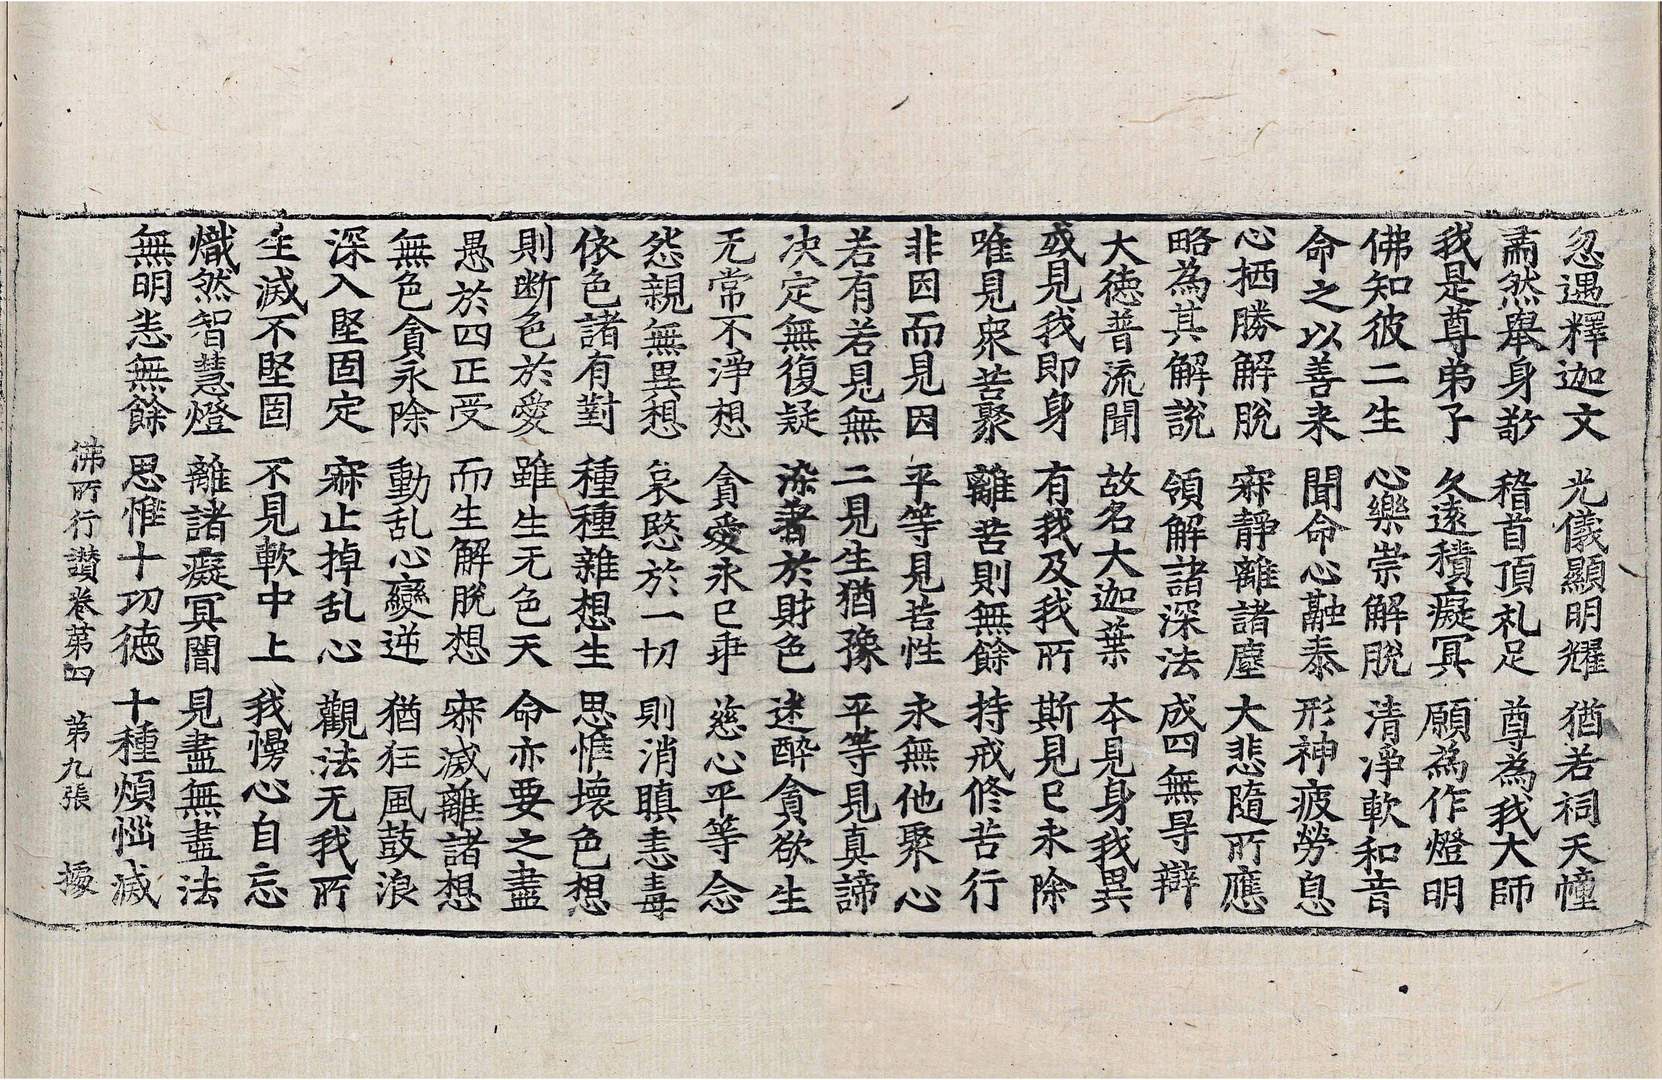 忽遇釋迦文 光儀顯明耀 猶若祠天幢
肅然舉身敬 稽首頂礼足 尊為我大師
我是尊弟子 久遠積癡冥 願為作燈明
佛知彼二生 心樂崇解脫 清淨軟和音
命之以善来 聞命心融泰 形神疲勞息
心栖勝解脫 寂靜離諸塵 大悲隨所應
略為其解說 領解諸深法 成四無㝵辯
大德普流聞 故名大迦葉 本見身我異
或見我即身 有我及我所 斯見已永除
唯見衆苦聚 離苦則無餘 持戒修苦行
非因而見因 平等見苦性 永無他聚心
若有若見無 二見生猶豫 平等見真諦
决定無復疑 染著於財色 迷醉貪欲生
无常不淨想 貪愛永已乖 慈心平等念
怨親無異想 哀愍於一切 則消瞋恚毒
依色諸有對 種種雜想生 思惟壞色想
則断色於愛 雖生无色天 命亦要之盡
愚於四正受 而生解脫想 寂滅離諸想
無色貪永除 動乱心變逆 猶狂風鼓浪
深入堅固定 寂止掉乱心 觀法无我所
生滅不堅固 不見軟中上 我慢心自忘
熾然智慧燈 離諸癡冥闇 見盡無盡法
無明悉無餘 思惟十功德 十種煩惱滅
佛所行讚卷第四 第九張 㨿